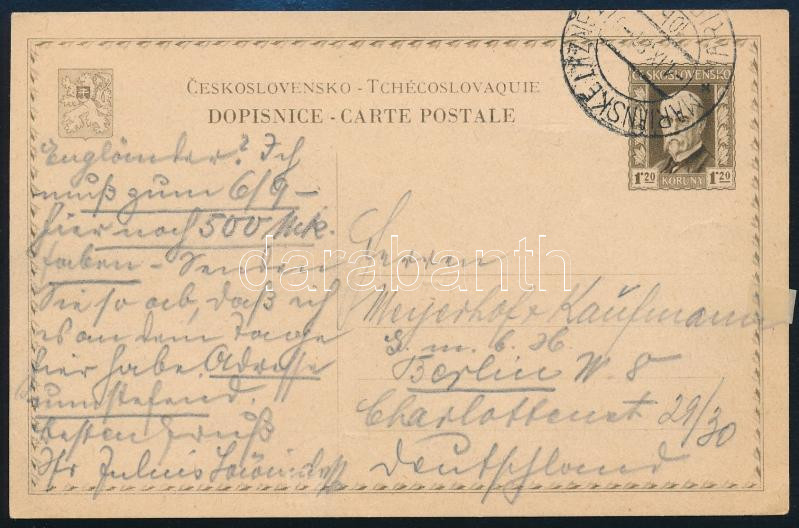 ČESKOSLOVENSKO - TCHÉCOSLOVAQUIE
DOPISNICE - CARTE POSTALE
ČESKOSLOVENSKO
1·20 KORUNY 1·20
MARIÁNSKÉ LÁZNĚ
Engländer? Ich
muß zum 6/9 –
hier noch 500 Mk.
haben – Senden
Sie so ab, daß ich
es an dem Tage
hier habe. Adresse
umstehend.
Besten Gruß
Ihr Julius
Herren
Meyerhof & Kaufmann
G. m. b. H.
Berlin W. 8
Charlottenst 29/30
Deutschland
darabanth